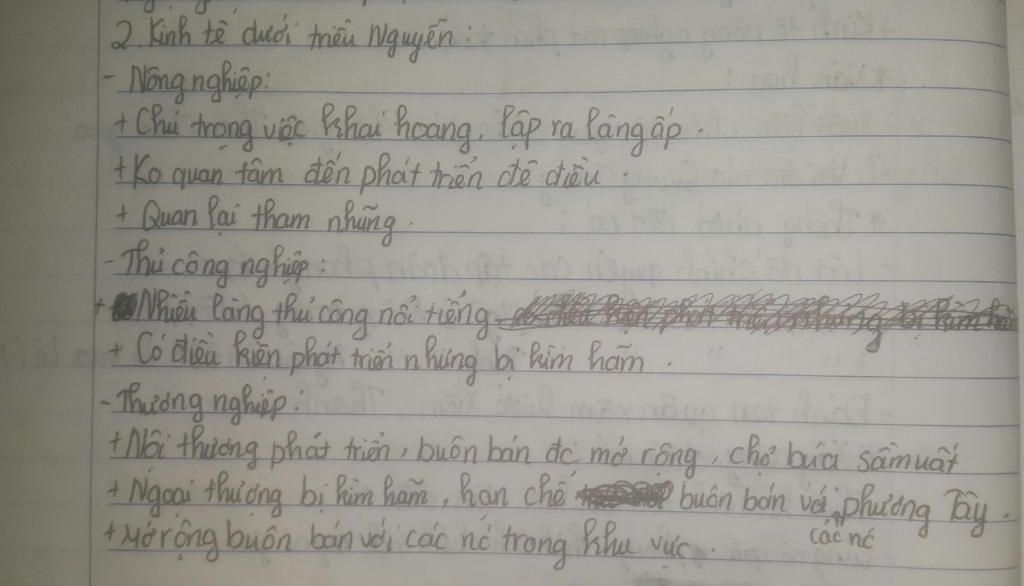 2. Kinh tế dưới triều Nguyễn:
- Nông nghiệp:
+ Chú trọng việc khai hoang, lập ra làng ấp.
+ Ko quan tâm đến phát triển đê điều.
+ Quan lại tham nhũng.
- Thủ công nghiệp:
+ Nhiều làng thủ công nổi tiếng
+ Có điều kiện phát triển nhưng bị kìm hãm.
- Thương nghiệp:
+ Nội thương phát triển, buôn bán đc mở rộng, chợ búa sầm uất
+ Ngoại thương bị kìm hãm, hạn chế buôn bán với các nc phương Tây.
+ Mở rộng buôn bán với các nc trong khu vực.